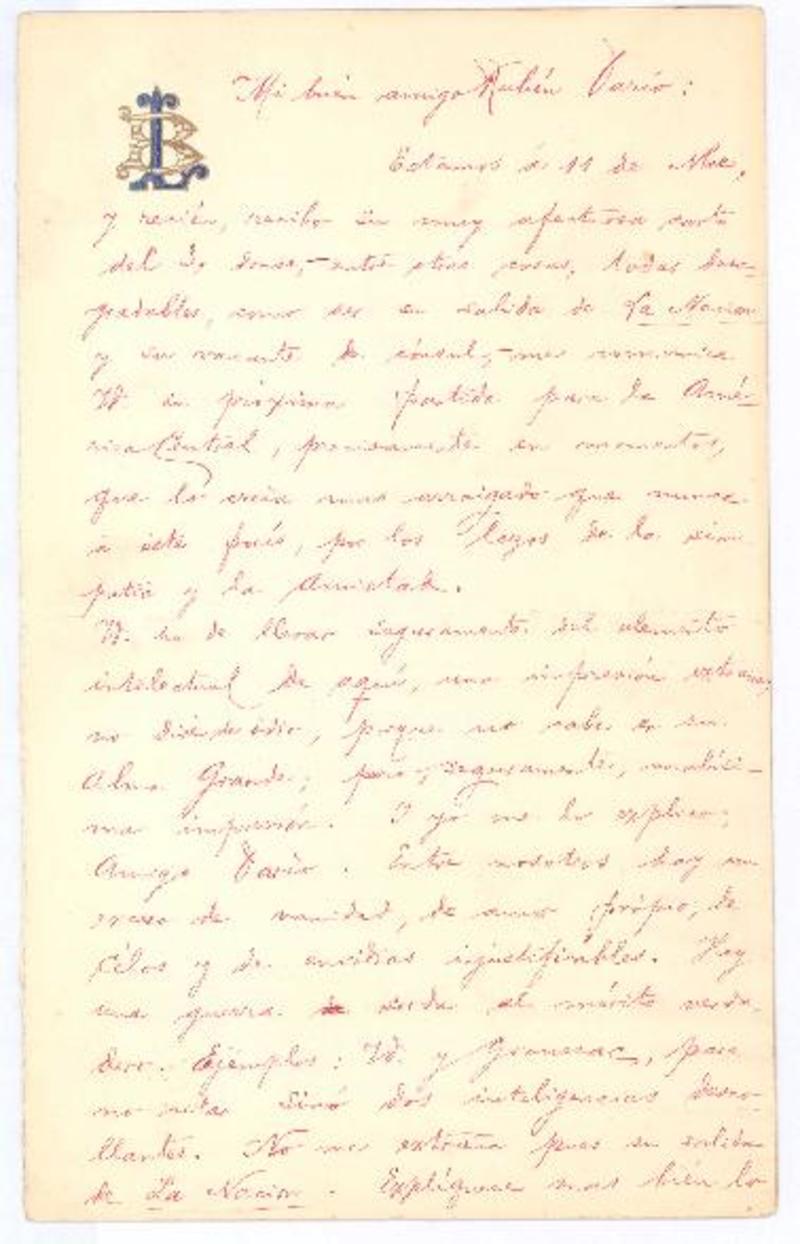 Mi buén amigo Rubén Darío:
Estamos á 11 de Nbre,
y recién, recibo su muy afectuosa carta
del 2, donde, entre otras cosas, todas desa-
gradables, como ser su salida de La Nacion
y su vacante de cónsul, me comunica
Vd. su próxima partida para la Amé-
rica Central, precisamente en momentos,
que lo creía mas arraigado que nunca
á este país, por los lazos de la sim
patía y la Amistad.
Vd. ha de llevar seguramente del elemento
intelectual de aquí, una impresión
no diré de ódio, porque no cabe en su
Alma Grande; pero, seguramente, malísi-
ma impresión. I yo me lo explico,
Amigo Darío. Entre nosotros hay un
exceso de vanidad, de amor própio, de
célos y de envidias injustificables. Hay
una guerra sorda al mérito verda-
dero. Ejemplos: Vd. y Groussac, para
no citar sinó dos inteligencias desco-
llantes. No me extraña pues su salida
de La Nacion. Explíquese mas bién lo